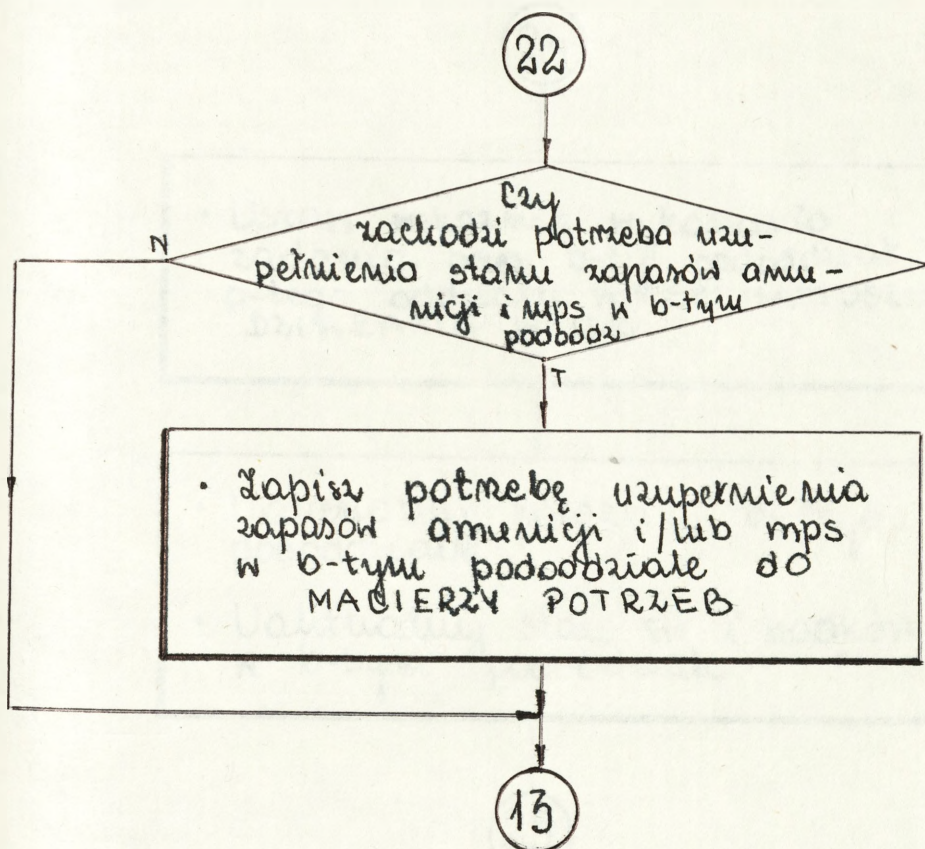 22
Czy
zachodzi potrzeba uzu-
pełnienia stanu zapasów amu-
nicji i mps w b-tym
pododdz
N
T
· Zapisz potrzebę uzupełnienia
zapasów amunicji i/lub mps
w b-tym pododdziale do
MACIERZY POTRZEB
13